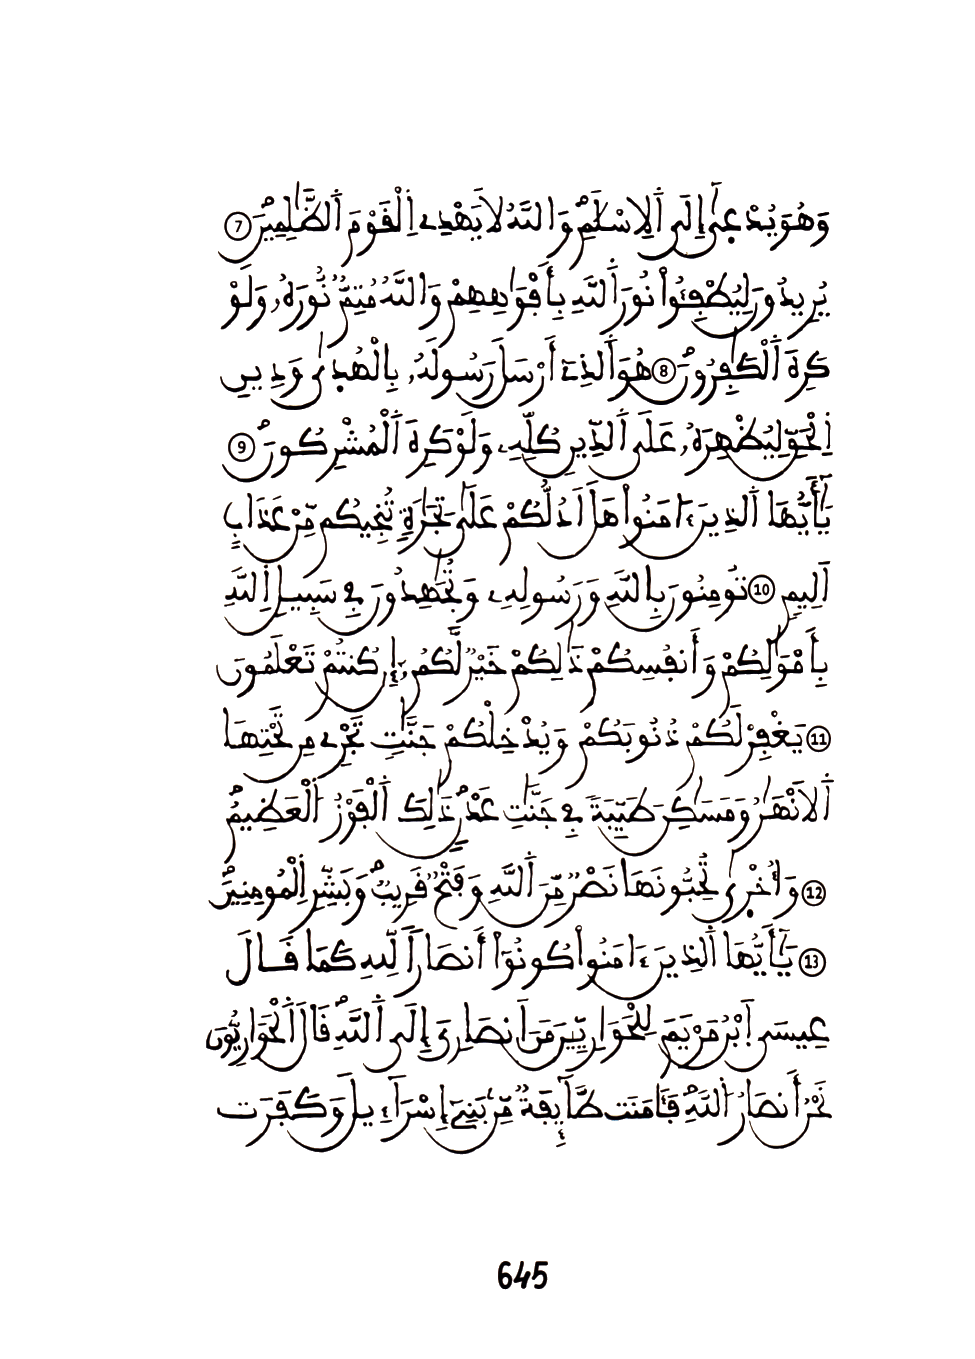 وَهُوَ يُدْعَىٰٓ إِلَى اَ۬لِاسْلَٰمِۖ وَاللَّهُ لَا يَهْدِے اِ۬لْقَوْمَ اَ۬لظَّٰلِمِينَۖ 7
يُرِيدُونَ لِيُطْفِـُٔواْ نُورَ اَ۬للَّهِ بِأَفْوَٰهِهِمْ وَاللَّهُ مُتِمّٞ نُّورَهُۥ وَلَوْ
كَرِهَ اَ۬لْكَٰفِرُونَۖ 8 هُوَ اَ۬لذِےٓ أَرْسَلَ رَسُولَهُۥ بِالْهُد۪ىٰ وَدِينِ
اِ۬لْحَقِّ لِيُظْهِرَهُۥ عَلَى اَ۬لدِّينِ كُلِّهِۦ وَلَوْ كَرِهَ اَ۬لْمُشْرِكُونَۖ 9
يَٰٓأَيُّهَا اَ۬لذِينَ ءَامَنُواْ هَلَ اَدُلُّكُمْ عَلَىٰ تِجَٰرَةٖ تُنجِيكُم مِّنْ عَذَابٍ
اَلِيمٖ 10 تُومِنُونَ بِاللَّهِ وَرَسُولِهِۦ وَتُجَٰهِدُونَ فِے سَبِيلِ اِ۬للَّهِ
بِأَمْوَٰلِكُمْ وَأَنفُسِكُمْ ذَٰلِكُمْ خَيْرٞ لَّكُمُۥٓ إِن كُنتُمْ تَعْلَمُونَ
11 يَغْفِرْ لَكُمْ ذُنُوبَكُمْ وَيُدْخِلْكُمْ جَنَّٰتٖ تَجْرِے مِن تَحْتِهَا
اَ۬لَانْهَٰرُ وَمَسَٰكِنَ طَيِّبَةٗ فِے جَنَّٰتِ عَدْنٖۖ ذَٰلِكَ اَ۬لْفَوْزُ اُ۬لْعَظِيمُۖ
12 وَأُخْر۪ىٰ تُحِبُّونَهَا نَصْرٞ مِّنَ اَ۬للَّهِ وَفَتْحٞ قَرِيبٞۖ وَبَشِّرِ اِ۬لْمُومِنِينَۖ
13 يَٰٓأَيُّهَا اَ۬لذِينَ ءَامَنُواْ كُونُوٓاْ أَنصَاراٗ لِّلهِ كَمَا قَالَ
عِيسَى اَ۪بْنُ مَرْيَمَ لِلْحَوَارِيِّـۧنَ مَنَ اَنصَارِيَ إِلَى اَ۬للَّهِۖ قَالَ اَ۬لْحَوَارِيُّونَ
نَحْنُ أَنصَارُ اُ۬للَّهِۖ فَـَٔامَنَت طَّآئِفَةٞ مِّنۢ بَنِےٓ إِسْرَآءِيلَ وَكَفَرَت
645